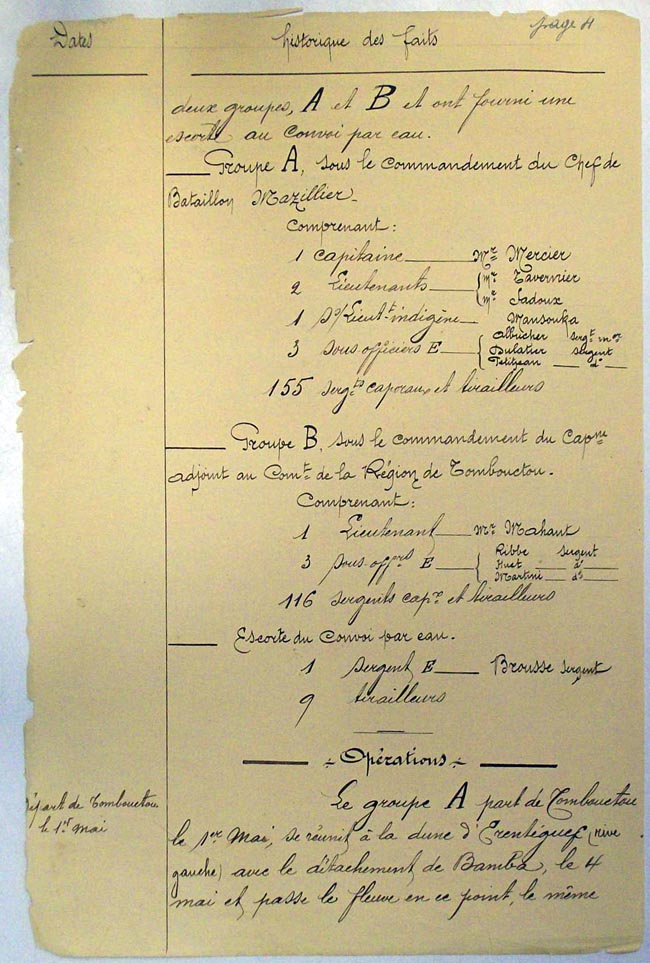 page 4
Dates
historique des faits
deux groupes, A et B et ont fourni une
escorte au Convoi par eau.
Groupe A, sous le commandement du Chef de
Bataillon Mazillier.
Comprenant :
1 Capitaine Mr Mercier
2 Lieutenants Mr Tavernier
Mr Sadoux
1 S/Lieutt indigène Mansouka
3 sous officiers E Albucher sergt mor
Dulatier sergent
Petitjean do
155 sergts caporaux et tirailleurs
Groupe B, sous le commandement du Capne
adjoint au Comt de la Région de Tombouctou.
Comprenant :
1 Lieutenant Mr Mahaut
3 sous-offers E Ribbe sergent
Huet do
Martini do
116 sergents capx et tirailleurs
Escorte du Convoi par eau.
1 sergent E Brousse sergent
9 tirailleurs
Opérations
Départ de Tombouctou
le 1er mai
Le groupe A part de Tombouctou
le 1er Mai, se réunit à la dune d'Erentéguef (rive
gauche) avec le détachement de Bamba, le 4
mai et passe le fleuve en ce point, le même